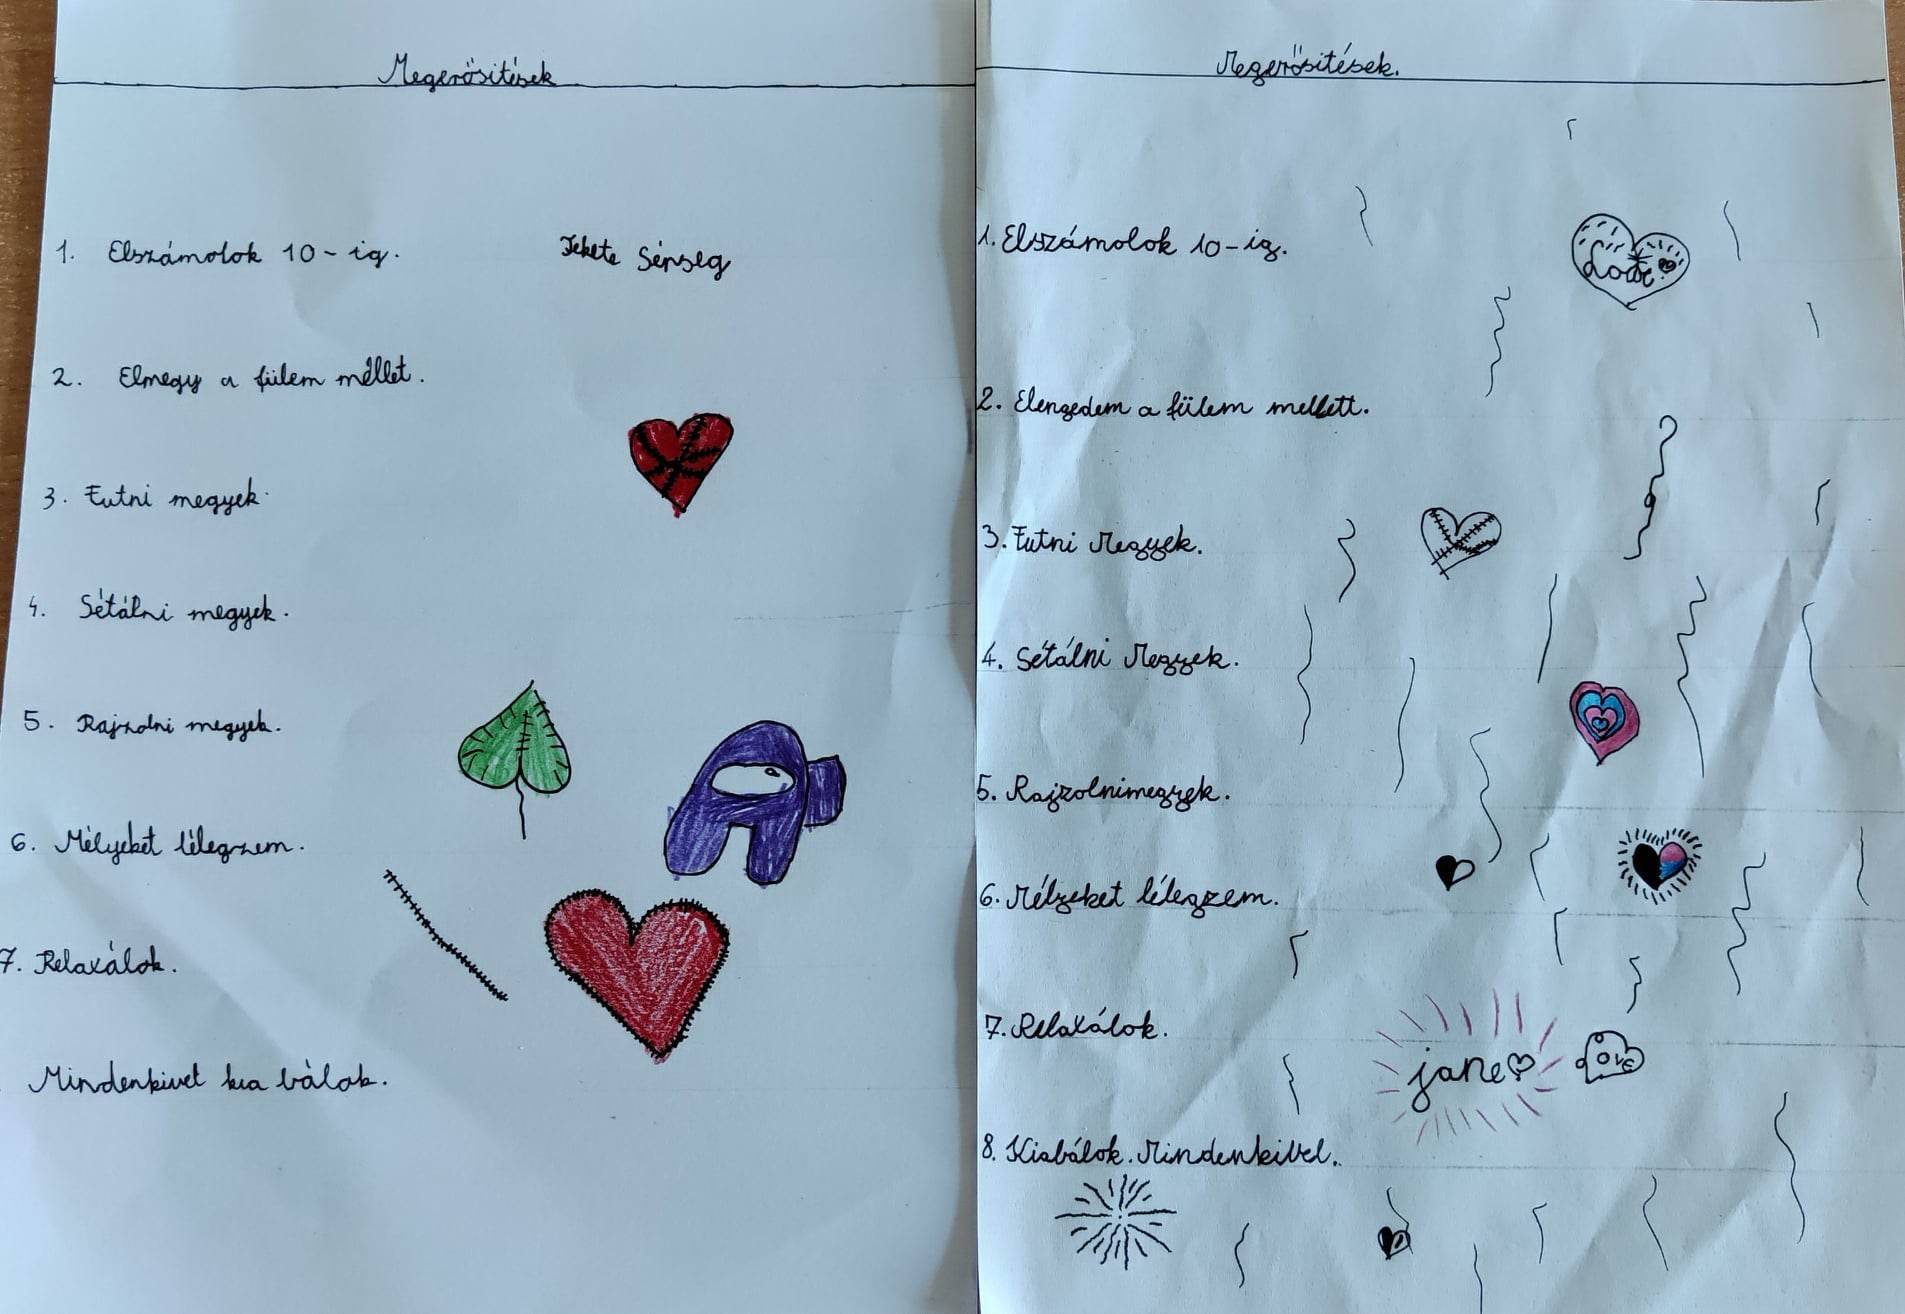 Megerősítések
1. Elszámolok 10-ig.
Fekete Sereg
2. Elmegy a fülem méllet.
3. Futni megyek.
4. Sétálni megyek.
5. Rajzolni megyek.
6. Mélyeket lélegzem.
7. Relaxálok.
Mindenkivel kia bálok.
Megerősítések.
1. Elszámolok 10-ig.
2. Elengedem a fülem mellett.
3. Futni Megyek.
4. Sétálni Megyek.
5. Rajzolnimegyek.
6. Mélyeket lélegzem.
7. Relaxálok.
jane
8. Kiabálok. Mindenkivel.